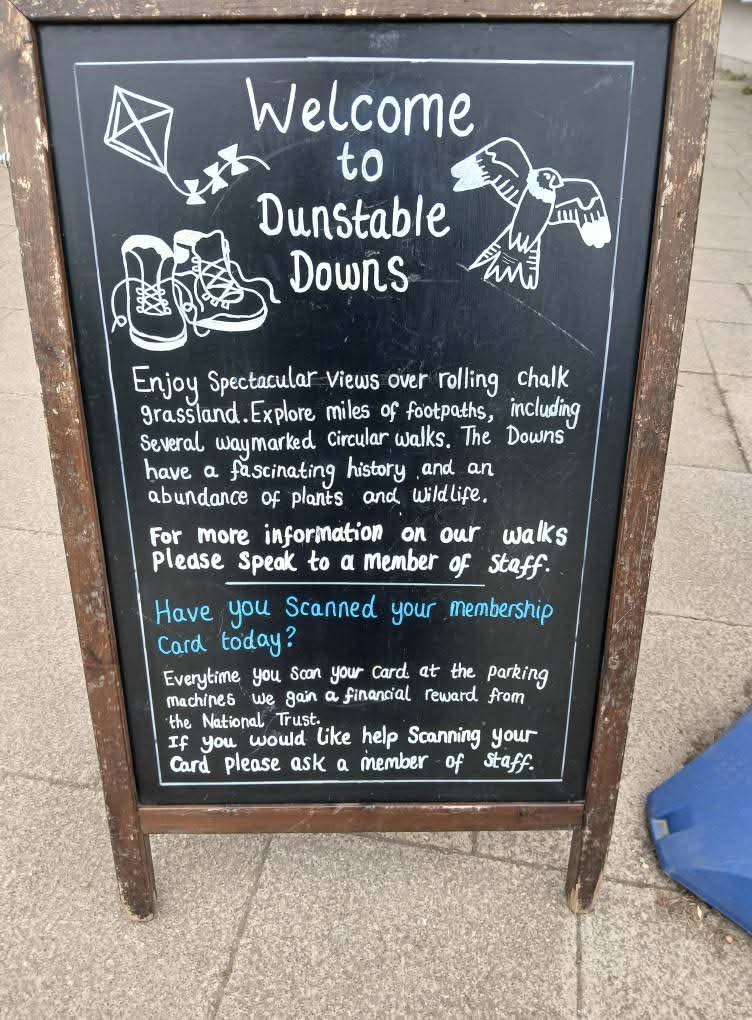 Welcome
to
Dunstable
Downs
Enjoy Spectacular views over rolling chalk
grassland. Explore miles of footpaths, including
Several waymarked Circular walks. The Downs
have a fascinating history and an
abundance of plants and wildlife.
For more information on our walks
Please Speak to a Member of Staff.
Have you Scanned your membership
Card today?
Everytime you Scan your Card at the parking
machines we gain a financial reward from
the National Trust.
If you would like help Scanning your
Card please ask a member of Staff.